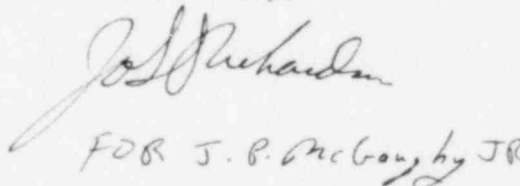 Jo L Richardson
FOR J. P. McGaughy JR